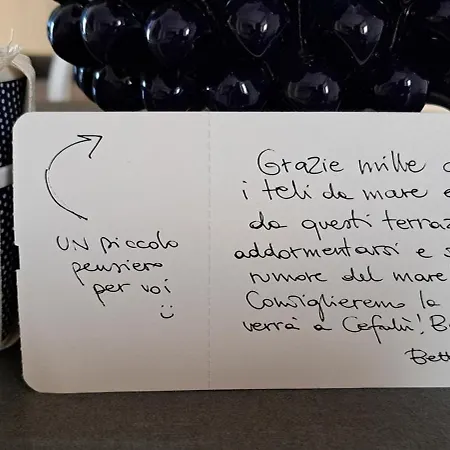 UN piccolo
pensiero
per voi
Grazie mille
i teli da mare e
da questi terraz
addormentarsi e s
rumore del mare
Consiglieremo la
verrà a Cefalù! B
Bett